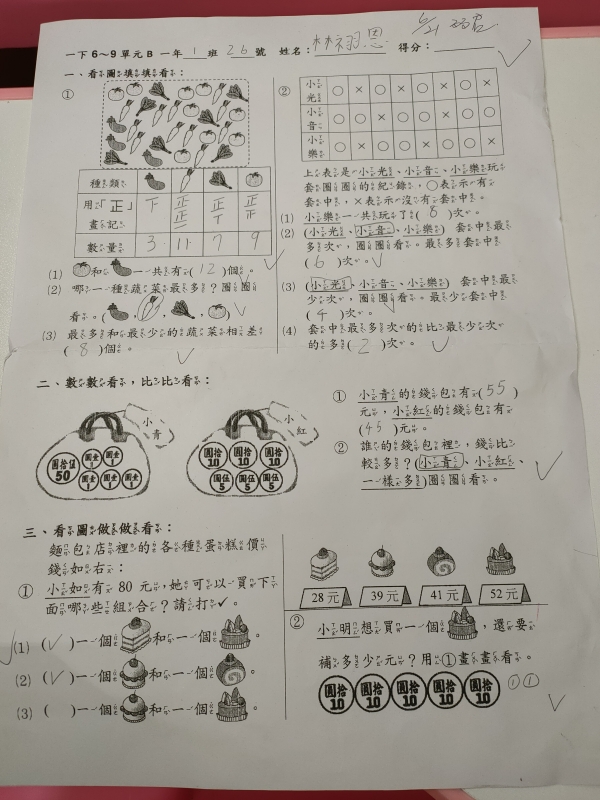 一下6~9單元B 一年1班26號 姓名:林羽恩 得分:
一、看圖填填看:
①
種類
用「正」畫記 下 正正一 正丅 正正
數量 3 11 7 9
(1) 和 一共有(12)個。
(2) 哪一種蔬菜最多?圈圈
看。( 、 、 、 )
(3) 最多和最少的蔬菜相差
(8)個。
②
小光 ○ × ○ ○ × ○ ×
小音 ○ ○ × ○ ○ ○ ○
小樂 ○ × ○ ○ × ○ ○
上表是小光、小音、小樂玩
套圈圈的紀錄,○表示有
套中,×表示沒有套中。
(1) 小樂一共玩了(8)次。
(2) (小光、小音、小樂)套中最
多次,圈圈看。最多套中
(6)次。
(3) (小光、小音、小樂)套中最
少次,圈圈看。最少套中
(4)次。
(4) 套中最多次的比最少次
的多(2)次。
二、數數看,比比看:
小青
圓拾伍 50 圓壹 1 圓壹 1 圓壹 1 圓壹 1 圓壹 1
小紅
圓拾 10 圓拾 10 圓拾 10
圓伍 5 圓伍 5 圓伍 5
① 小青的錢包有(55)
元,小紅的錢包有
(45)元。
② 誰的錢包裡,錢比
較多?(小青、小紅、
一樣多)圈圈看。
三、看圖做做看:
麵包店裡的各種蛋糕價
錢如右:
28元 39元 41元 52元
① 小如有80元,她可以買下
面哪些組合?請打✓。
(1) (✓)一個 和一個 。
(2) (✓)一個 和一個 。
(3) ( )一個 和一個 。
② 小明想買一個 ,還要
補多少元?用①畫畫看。
圓拾 10 圓拾 10 圓拾 10 圓拾 10 圓拾 10 ① ①